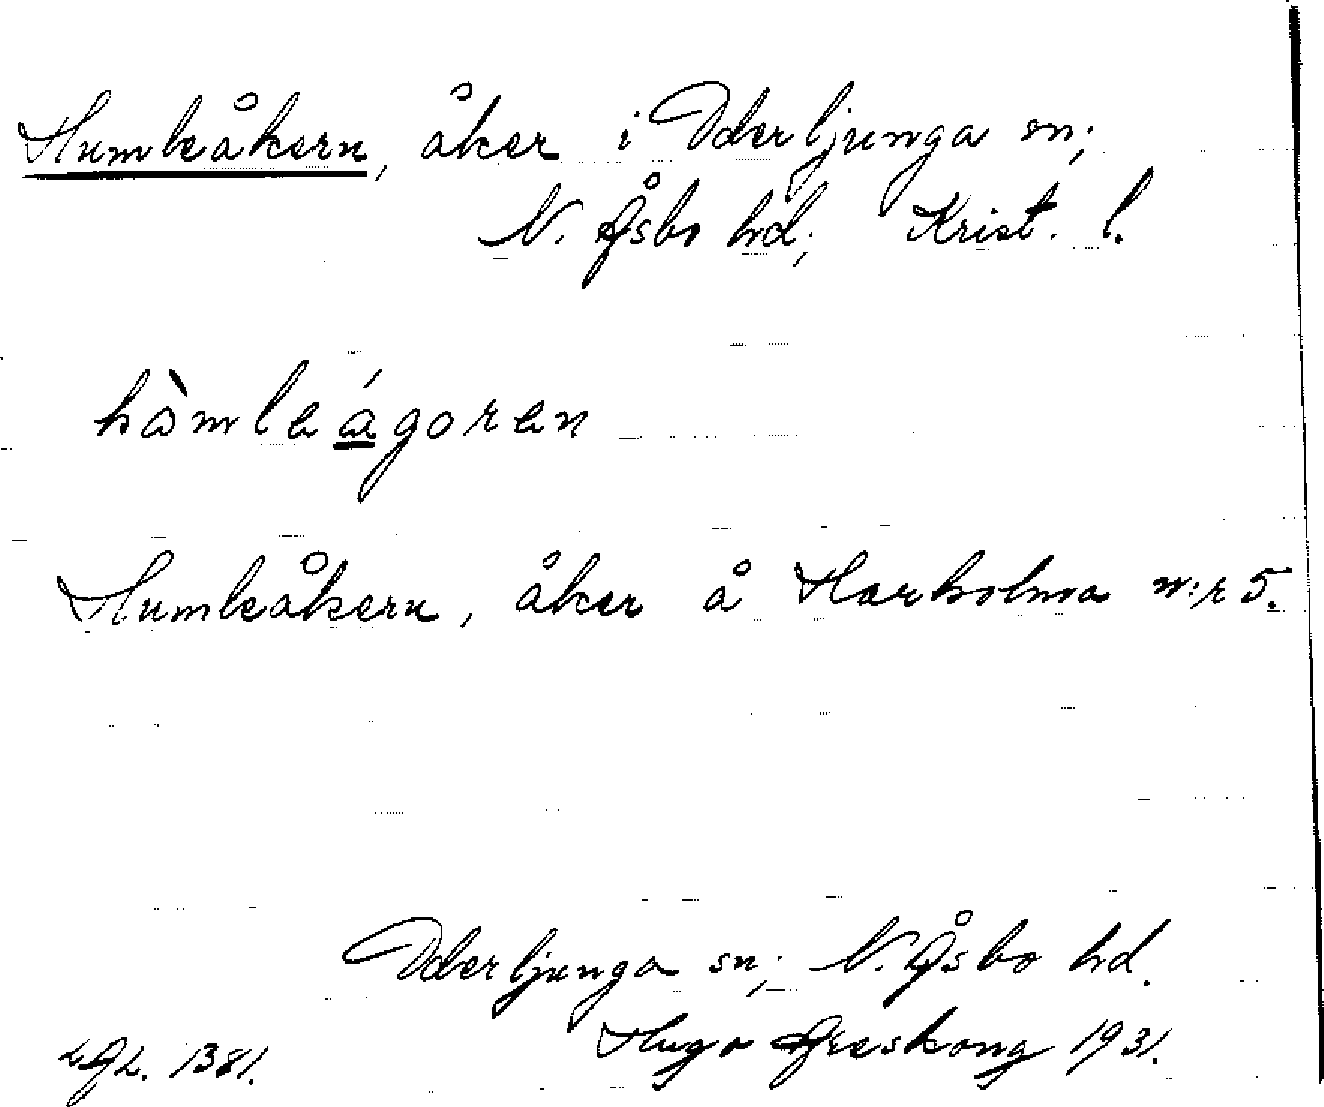 Humleåkern, åker i Oderljunga sn;
N. Åsbo hd; Krist. l.
hòmleágoren
Humleåkern, åker å Harholma n:r 5.
Oderljunga sn; N. Åsbo hd.
Hugo Areskoug 1931.
1381.